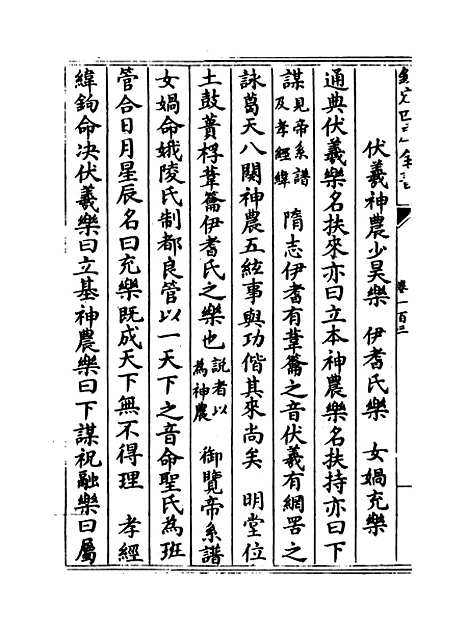 欽定四庫全書
卷一百三
伏羲神農少昊樂　伊耆氏樂　女媧充樂
通典伏羲樂名扶來亦曰立本神農樂名扶持亦曰下
謀見帝系譜及孝經緯　隋志伊耆有葦籥之音伏羲有網罟之
詠葛天八闋神農五絃事與功偕其來尚矣　明堂位
土鼓蕢桴葦籥伊耆氏之樂也說者以為神農　御覽帝系譜
女媧命娥陵氏制都良管以一天下之音命聖氏為班
管合日月星辰名曰充樂既成天下無不得理　孝經
緯鉤命决伏羲樂曰立基神農樂曰下謀祝融樂曰屬